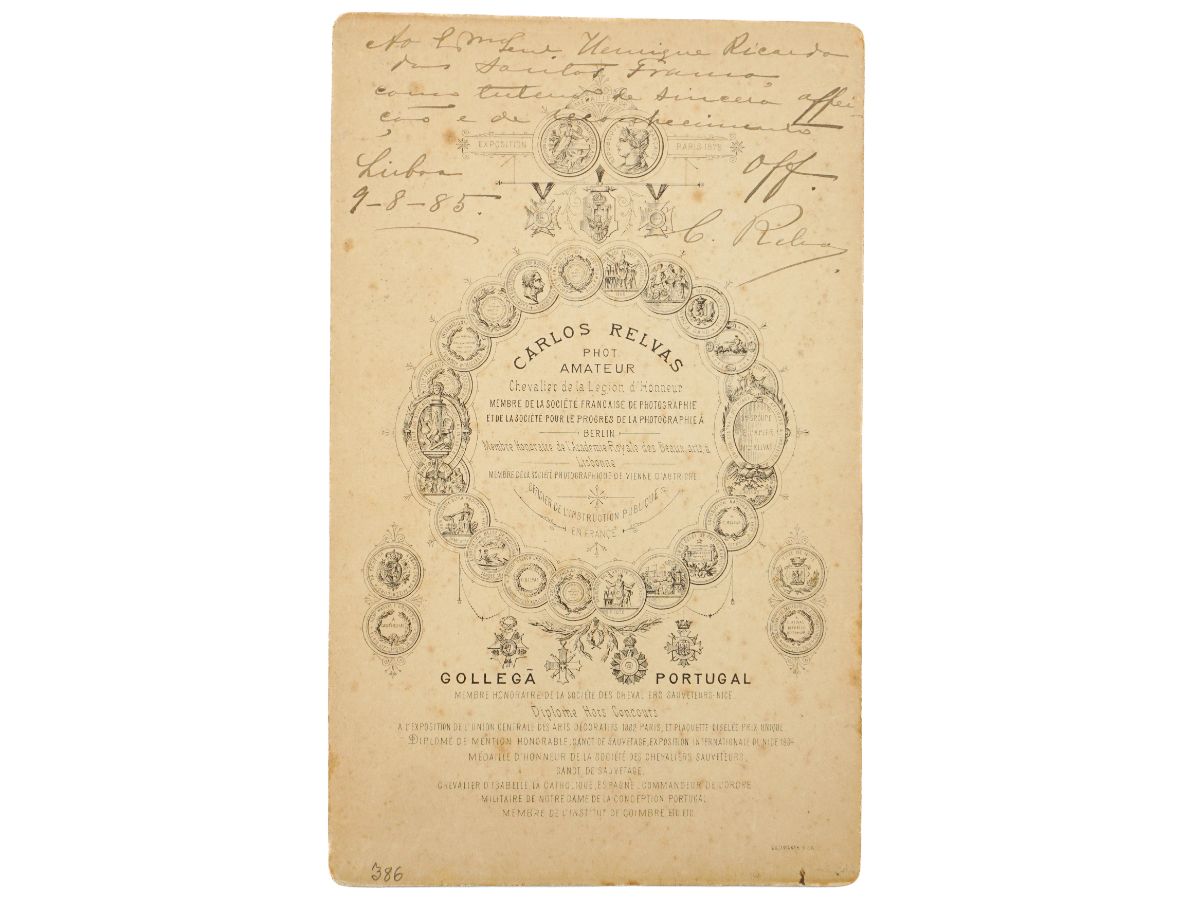 Ao Ex.mo Snr. Henrique Ricardo
dos Santos Franco,
como de sincera affei-
ção e de reconhecimento
Lisboa Off.
9-8-85.
C. Relvas
EXPOSITION PARIS 1878
CARLOS RELVAS
PHOT
AMATEUR
Chevalier de la Légion d'Honneur
MEMBRE DE LA SOCIÉTÉ FRANCAISE DE PHOTOGRAPHIE
ET DE LA SOCIÉTÉ POUR LE PROGRÈS DE LA PHOTOGRAPHIE À
BERLIN
Membre Honoraire de l'Académie Royale des Beaux arts, à
Lisbonne
MEMBRE DE LA SOCIÉTÉ PHOTOGRAPHIQUE DE VIENNE D'AUTRICHE
OFFICIER DE L'INSTRUCTION PUBLIQUE
EN FRANCE
GOLLEGÃ PORTUGAL
MEMBRE HONORAIRE DE LA SOCIÉTÉ DES CHEVALIERS SAUVETEURS-NICE.
Diplome Hors Concours
A L'EXPOSITION DE L'UNION CENTRALE DES ARTS DÉCORATIFS 1882 PARIS, ET PLAQUETTE CISELÉE PRIX UNIQUE
DIPLOME DE MENTION HONORABLE, CANOT DE SAUVETAGE, EXPOSITION INTERNATIONALE DE NICE 1884
MÉDAILLE D'HONNEUR DE LA SOCIÉTÉ DES CHEVALIERS SAUVETEURS,
CANOT DE SAUVETAGE.
CHEVALIER D'ISABELLE LA CATHOLIQUE, ESPAGNE, COMMANDEUR DE L'ORDRE
MILITAIRE DE NOTRE DAME DE LA CONCEPTION PORTUGAL
MEMBRE DE L'INSTITUT DE COIMBRE ETC ETC
386